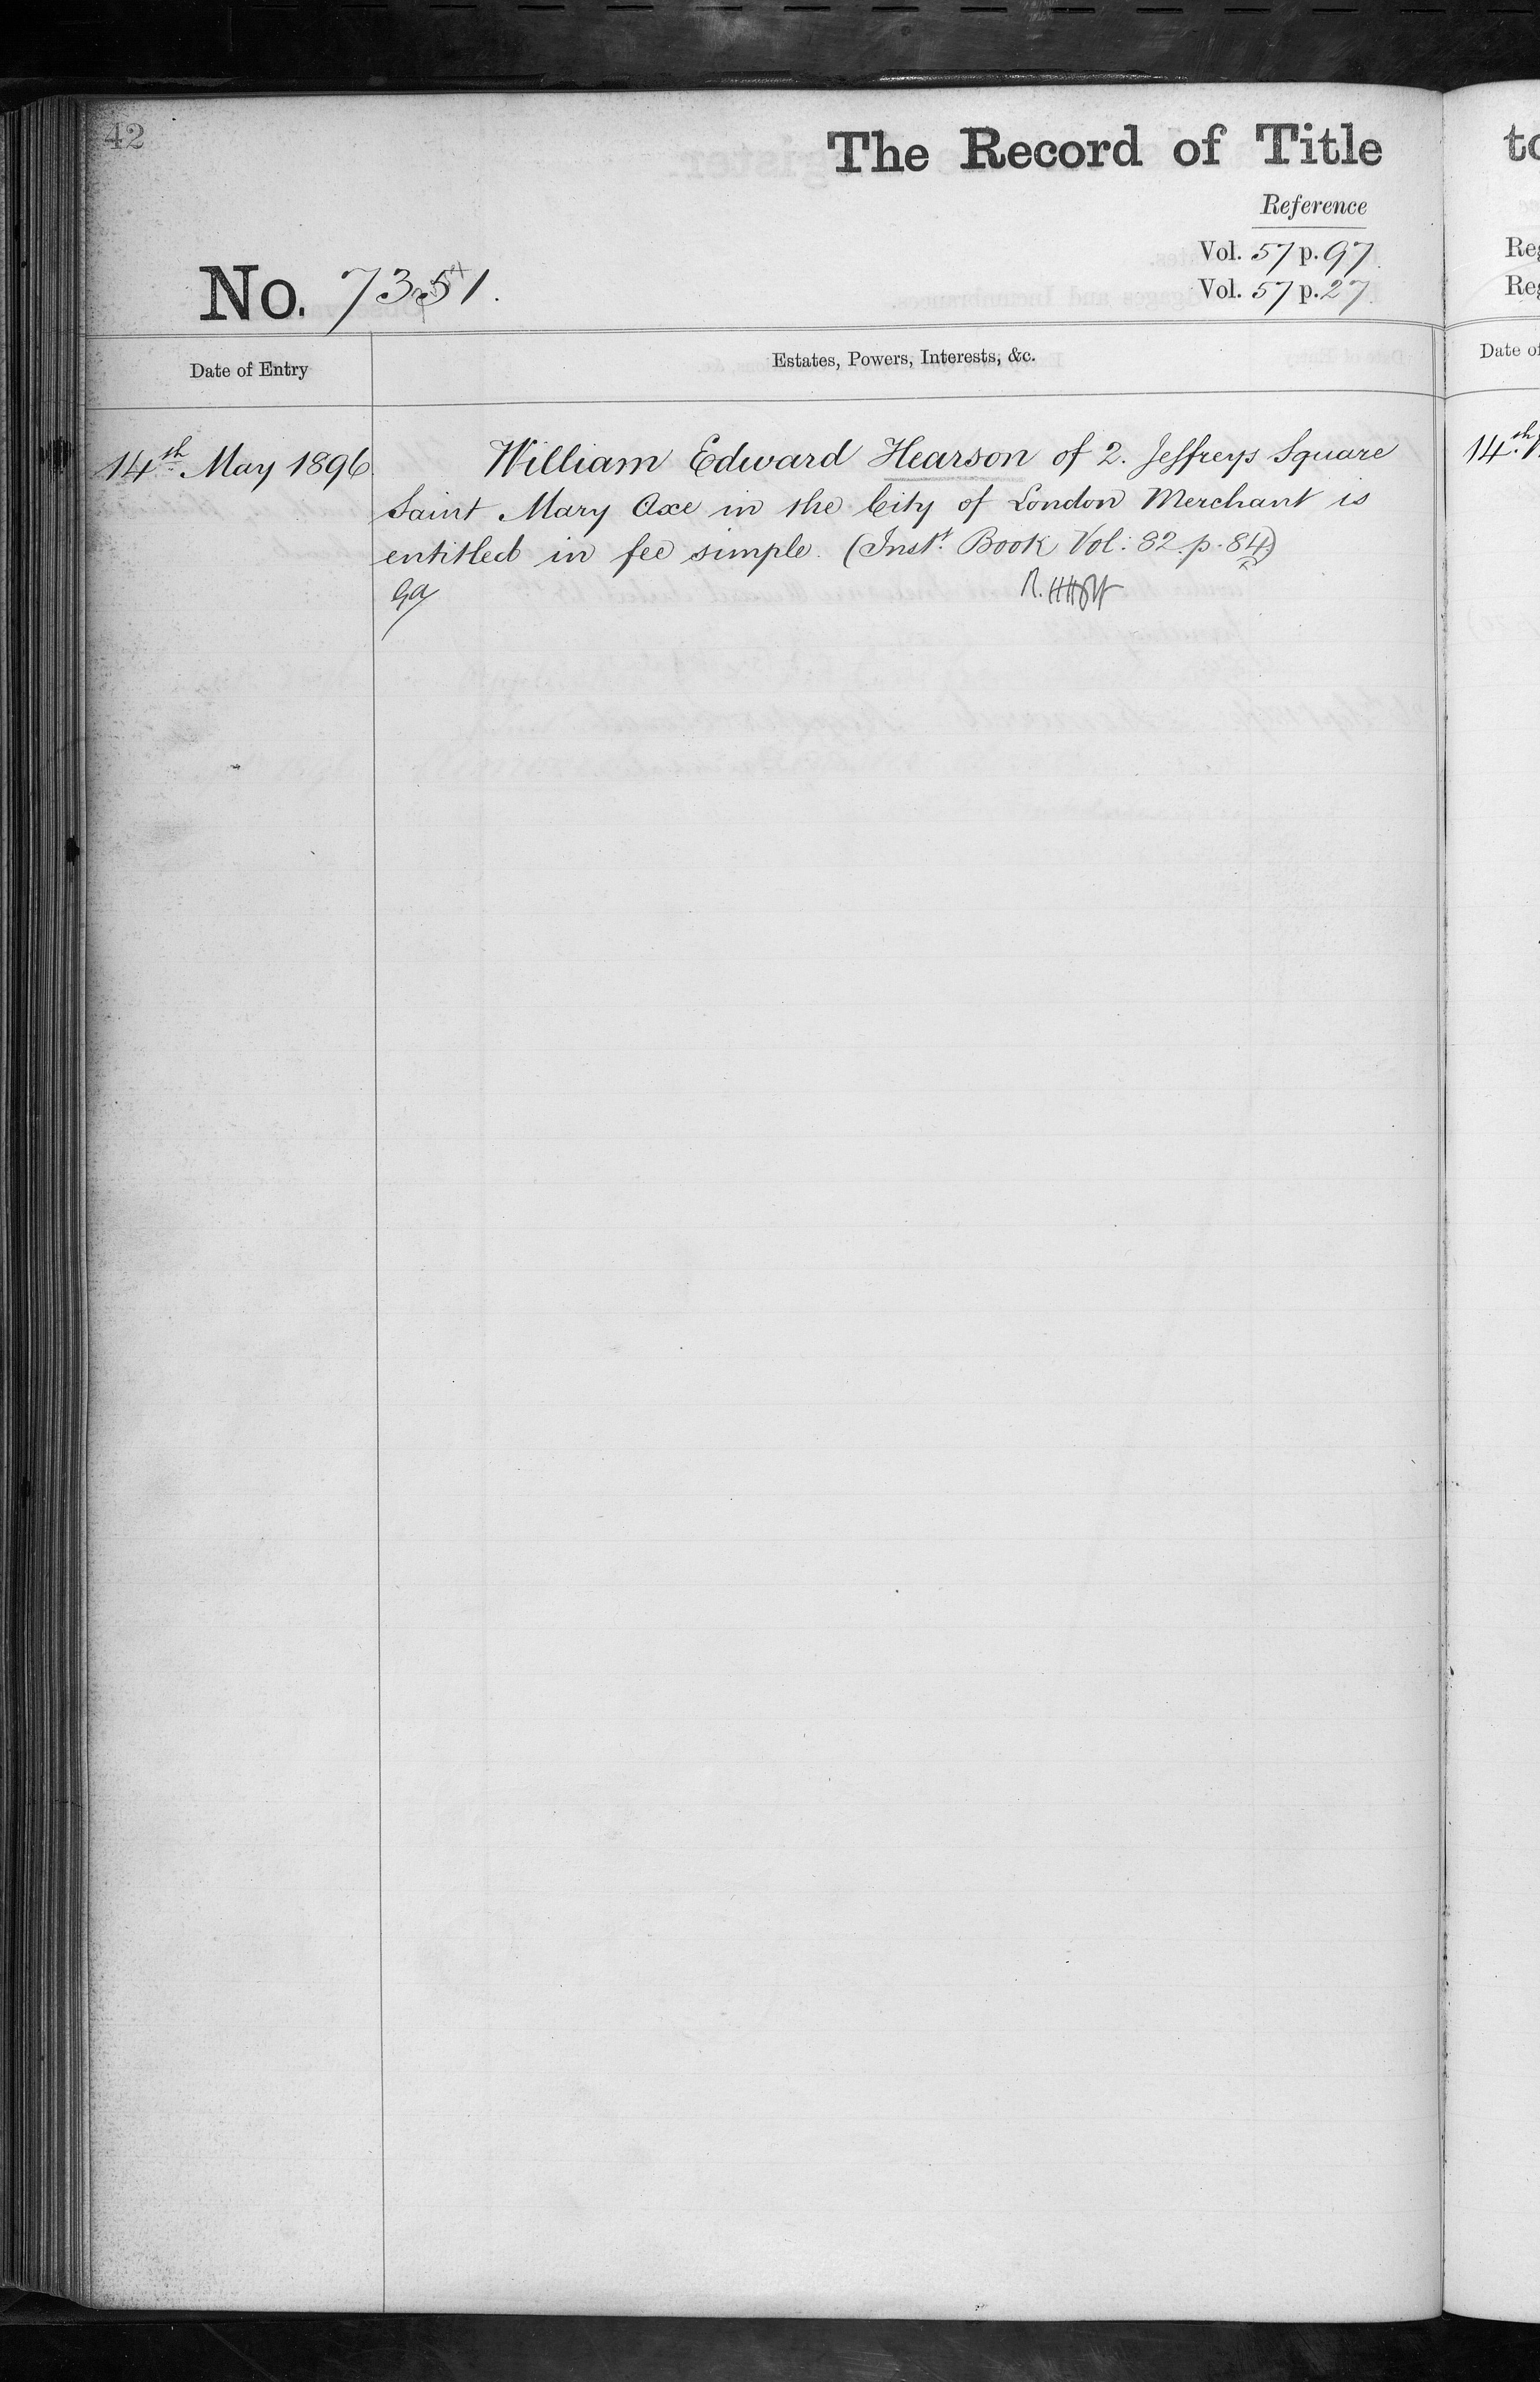 42
The Record of Title
Reference
Vol. 57 p. 97
Vol. 57 p. 27
No. 7351.
Date of Entry
Estates, Powers, Interests, &c.
14th May 1896
William Edward Hearson of 2. Jeffreys Square
Saint Mary Axe in the City of London Merchant is
entitled in fee simple. (Inst. Book Vol: 82. p. 84)
to
Reg
Reg
Date of
14th